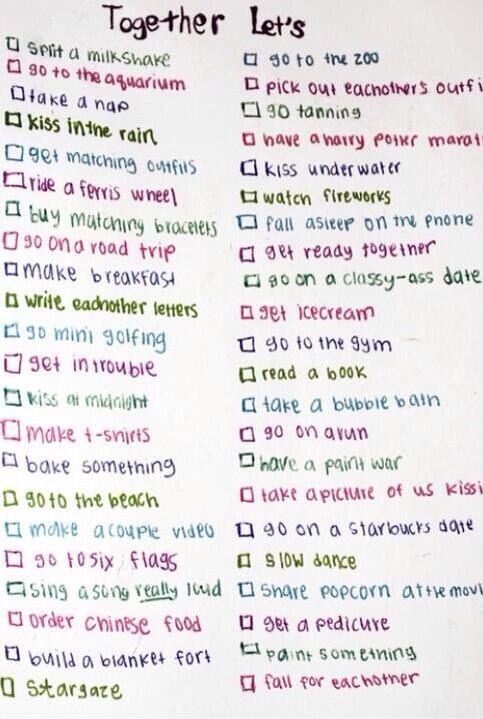 Together Let's
split a milkshake
go to the aquarium
take a nap
kiss in the rain
get matching outfits
ride a ferris wheel
buy matching bracelets
go on a road trip
make breakfast
write eachother letters
go mini golfing
get in trouble
kiss at midnight
make t-shirts
bake something
go to the beach
make a couple video
go to six flags
sing a song really loud
order chinese food
build a blanket fort
stargaze
go to the zoo
pick out eachother's outfi
go tanning
have a harry potter marat
kiss underwater
watch fireworks
fall asleep on the phone
get ready together
go on a classy-ass date
get icecream
go to the gym
read a book
take a bubble bath
go on a run
have a paint war
take a picture of us kissi
go on a starbucks date
slow dance
share popcorn at the movi
get a pedicure
paint something
fall for eachother